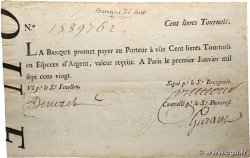 N.° 1589762 Cent livres Tournois.
LA BANQUE promet payer au Porteur à vüe Cent livres Tournois
en Especes d'Argent, valeur reçeüe. A Paris le premier Janvier mil
sept cens vingt.
Vû p.r le S.r Fenellon. Signé p.r le S.r Bourgeois.
Controllé p.r le S.r Durevest.